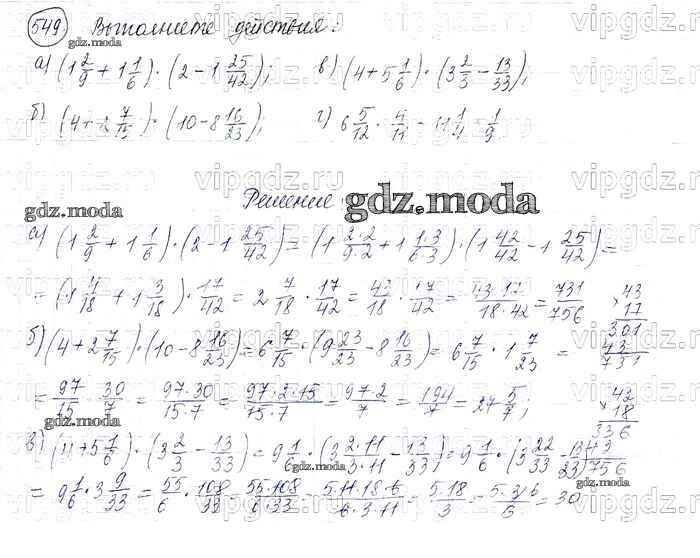 549. Выполните действия:
а) (1 2/9 + 1 1/6) · (2 - 1 25/42); в) (4 + 5 1/6) · (3 2/3 - 13/33);
б) (4 + 2 7/15) · (10 - 8 16/23); г) 6 5/12 · 4/11 - 4 1/4 · 1/9
Решение
gdz.moda
gdz.moda
а) (1 2/9 + 1 1/6) · (2 - 1 25/42) = (1 2·2/9·2 + 1 1·3/6·3) · (1 42/42 - 1 25/42) =
= (1 4/18 + 1 3/18) · 17/42 = 2 7/18 · 17/42 = 43/18 · 17/42 = 43·17/18·42 = 731/756
43 17 301 43 731
б) (4 + 2 7/15) · (10 - 8 16/23) = 6 7/15 · (9 23/23 - 8 16/23) = 6 7/15 · 1 7/23 =
= 97/15 · 30/7 = 97·30/15·7 = 97·2·15/15·7 = 97·2/7 = 194/7 = 27 5/7;
42 18 336 42 756
в) (4 + 5 1/6) · (3 2/3 - 13/33) = 9 1/6 · (3 2·11/3·11 - 13/33) = 9 1/6 · (3 22/33 - 13/33) =
= 9 1/6 · 3 9/33 = 55/6 · 108/33 = 55·108/6·33 = 5·11·18·6/6·3·11 = 5·18/3 = 5·3·6/3 = 30